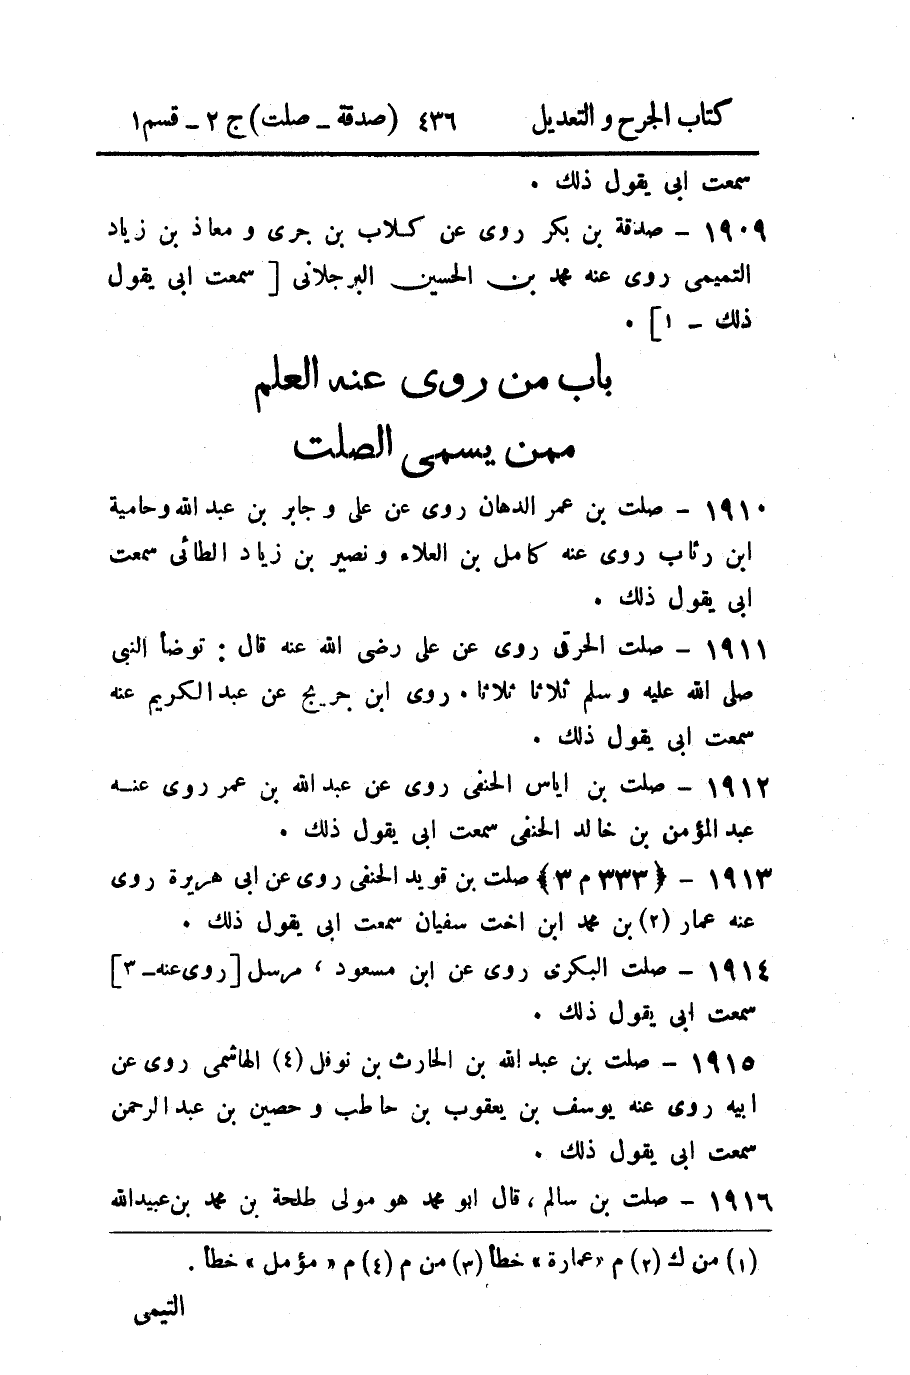 كتاب الجرح والتعديل ٤٣٦ (صدقة ـ صلت) ج ٢ ـ قسم ١
سمعت ابى يقول ذلك .
١٩٠٩ ـ صدقة بن بكر روى عن كلاب بن جرى و معاذ بن زياد
التميمى روى عنه محمد بن الحسين البرجلانى [ سمعت ابى يقول
ذلك ـ ١] .
باب من روى عنه العلم
ممن يسمى الصلت
١٩١٠ ـ صلت بن عمر الدهان روى عن على و جابر بن عبد الله وحامية
ابن رئاب روى عنه كامل بن العلاء و نصير بن زياد الطائى سمعت
ابى يقول ذلك .
١٩١١ ـ صلت الحرقى روى عن على رضى الله عنه قال : توضأ النبى
صلى الله عليه و سلم ثلاثا ثلاثا . روى ابن جريج عن عبد الكريم عنه
سمعت ابى يقول ذلك .
١٩١٢ ـ صلت بن اياس الحنفى روى عن عبد الله بن عمر روى عنه
عبد المؤمن بن خالد الحنفى سمعت ابى يقول ذلك .
١٩١٣ ـ ﴿٣٣٣ م ٣﴾ صلت بن قويد الحنفى روى عن ابى هريرة روى
عنه عمار (٢) بن محمد ابن اخت سفيان سمعت ابى يقول ذلك .
١٩١٤ ـ صلت البكرى روى عن ابن مسعود ، مرسل [روى عنه ـ ٣]
سمعت ابى يقول ذلك .
١٩١٥ ـ صلت بن عبد الله بن الحارث بن نوفل (٤) الهاشمى روى عن
ابيه روى عنه يوسف بن يعقوب بن حاطب و حصين بن عبد الرحمن
سمعت ابى يقول ذلك .
١٩١٦ ـ صلت بن سالم ، قال ابو محمد هو مولى طلحة بن محمد بن عبيد الله
(١) من ك (٢) م «عمارة» خطأ (٣) من م (٤) م « مؤمل » خطأ .
التيمى